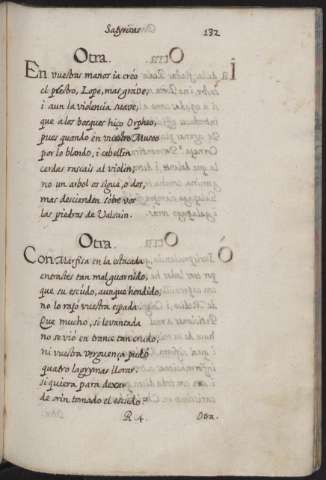 Satyricas
132
Otra.
En vuestras manos ia creo
el plectro, Lope, mas grave,
i aun la violencia suave,
que a los bosques hiço Orpheo,
pues quando en vuestro Museo
por lo blando, i cebellin
cerdas rascais al violin,
no un arbol os sigue, o dos,
mas descienden sobre vos
las piedras de Valsain.
Otra.
Con Marfisa en la estacada
entrastes tan mal guarnido,
que su escudo, aunque hendido,
no lo rajó vuestra espada.
Que mucho, si levantada
no se vió en trance tan crudo,
ni vuestra verguença pudo
quatro lagrymas llorar,
siquiera para dexar
de orin tomado el escudo.
R 4.
Otra.